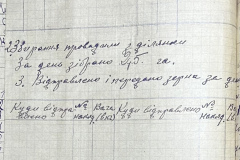 2. Збирання проводили з ділянки
За день зібрано 2,5 га.
3. Відправлено і передано зерна за д
Куди відпра № Вага Куди відправлено № Ва
влено накл. (кг) накл. (к